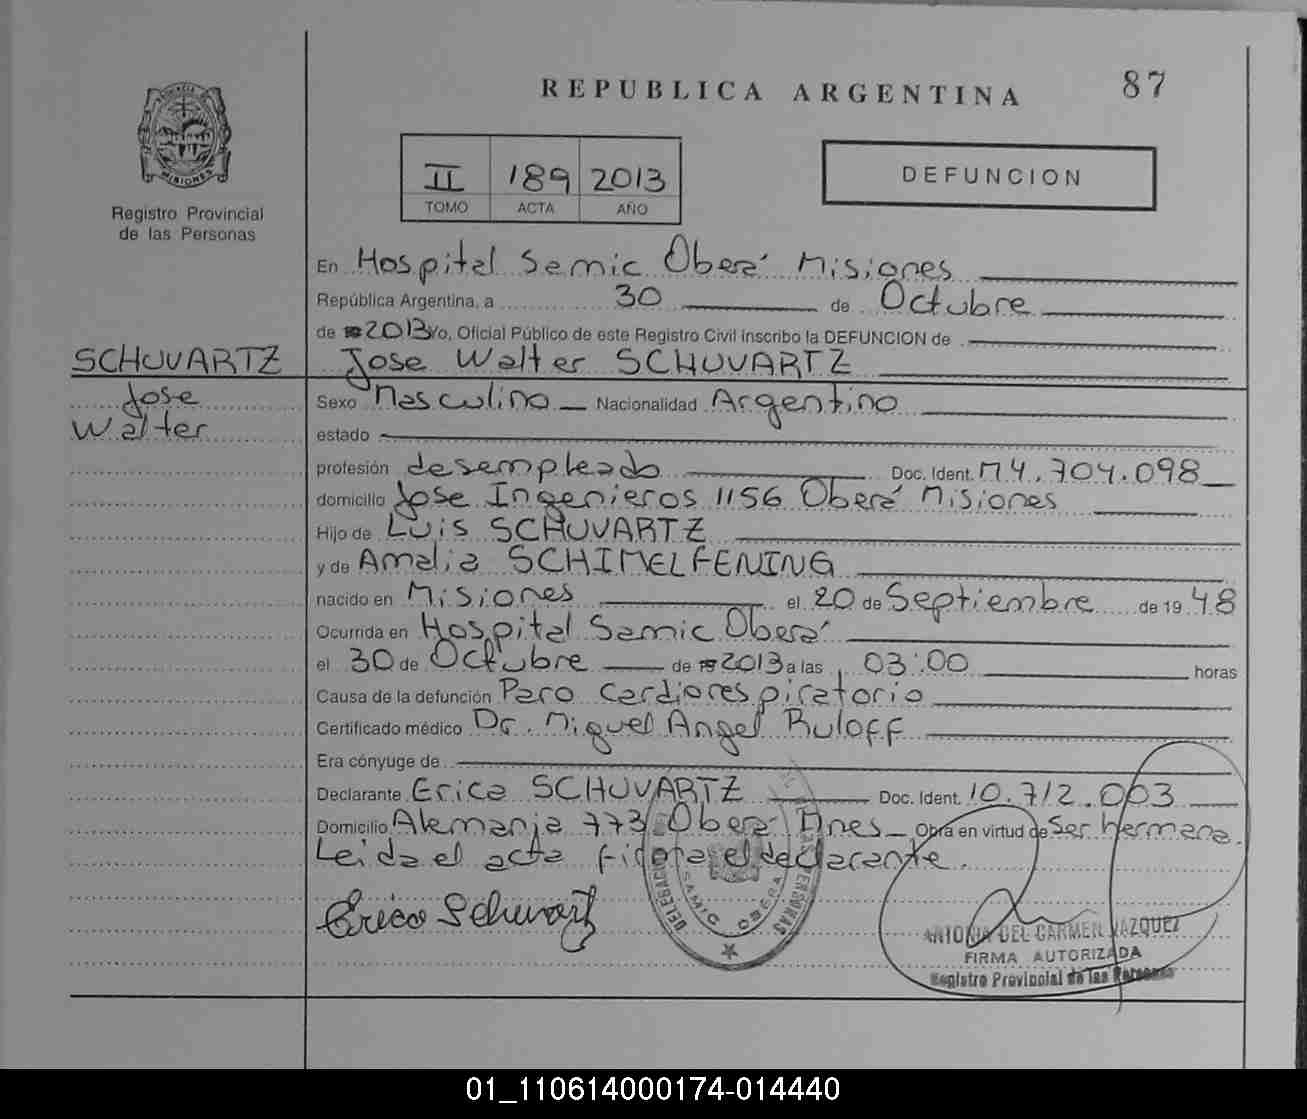 REPUBLICA ARGENTINA
87
II 189 2013
TOMO ACTA AÑO
DEFUNCION
PROVINCIA DE
MISIONES
Registro Provincial
de las Personas
En Hospital Samic Oberá Misiones
República Argentina, a 30 de Octubre
de 2013 Yo, Oficial Público de este Registro Civil inscribo la DEFUNCION de
SCHUVARTZ
Jose
Walter
Jose Walter SCHUVARTZ
Sexo Masculino Nacionalidad Argentino
estado
profesión desempleado Doc. Ident. M4.704.098
domicilio Jose Ingenieros 1156 Oberá Misiones
Hijo de Luis SCHUVARTZ
y de Amalia SCHIMELFENING
nacido en Misiones el 20 de Septiembre de 19 48
Ocurrida en Hospital Samic Oberá
el 30 de Octubre de 2013 a las 03:00 horas
Causa de la defunción Paro cardiorespiratorio
Certificado médico Dr. Miguel Angel Ruloff
Era cónyuge de
Declarante Erica SCHUVARTZ Doc. Ident. 10.712.003
Domicilio Alemania 773 Oberá Mnes Obra en virtud de Ser hermana.
Leida el acta firma el declarante.
Erica Schuvartz
SAMIC OBERA
PERSONAS
ANTONIA DEL CARMEN VAZQUEZ
FIRMA AUTORIZADA
Registro Provincial de las Personas
01_110614000174-014440